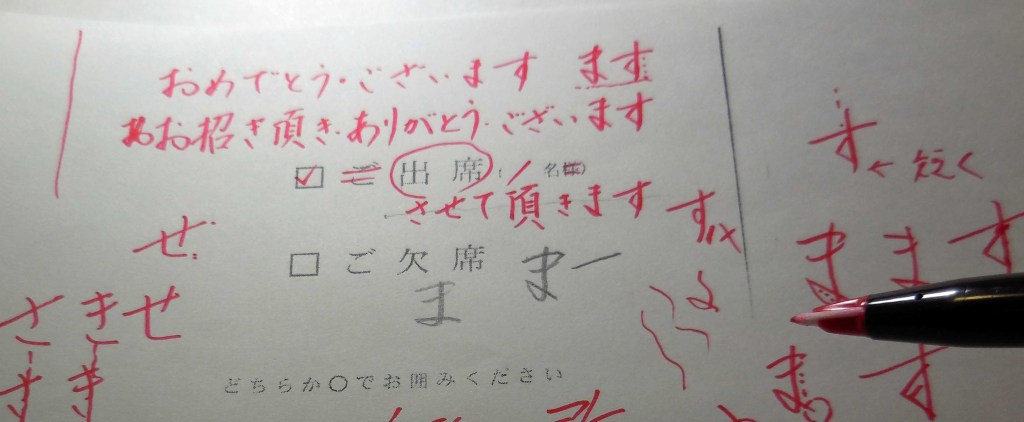 おめでとう・ございます ます
お招き頂き・ありがとう・ございます
☑ ご 出席 / 名
させて頂きます す
す ← 短く
ぜ
ま ま す
□ ご欠席 まー
ま
さ き せ
す き
ま す
どちらか〇でお囲みください